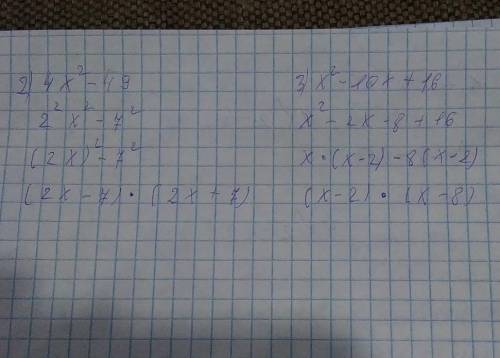 2) 4x² - 49
2²x² - 7²
(2x)² - 7²
(2x - 7) · (2x + 7)
3) x² - 10x + 16
x² - 2x - 8 + 16
x · (x - 2) - 8(x - 2)
(x - 2) · (x - 8)